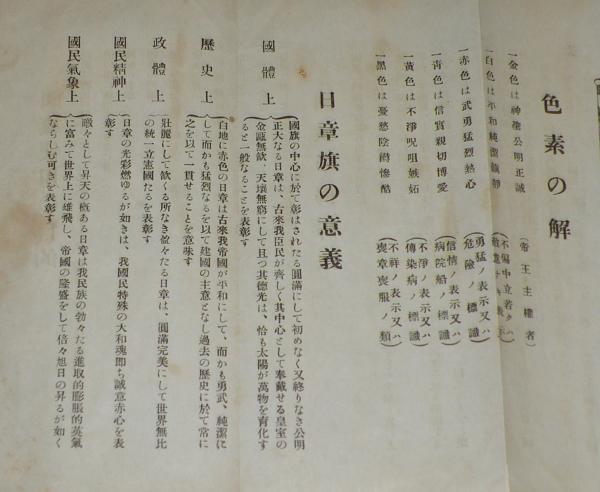 色素の解
一金色は神聖公明正誠
(帝王主權者)
一白色は平和純潔
(不偏中立若クハ
一赤色は武勇猛烈熱心
(勇猛ノ表示又ハ
危險ノ標識)
一靑色は信實親切博愛
(信情ノ表示又ハ
病院船ノ標識)
一黃色は不淨呪咀嫉妬
(不淨ノ表示又ハ
傳染病ノ標識)
一黑色は憂愁陰鬱慘酷
(不祥ノ表示又ハ
喪章喪服ノ類)
日章旗の意義
國體上
國旗の中心に於て彰はされたる圓滿にして初めなく又終りなき公明
正大なる日章は、古來我臣民が齊しく其中心として奉戴せる皇室の
金甌無欲、天壤無窮にして且つ其德光は、恰も太陽が萬物を育化す
ると一般なることを表彰す
歷史上
白地に赤色の日章は古來我帝國が平和にして、而かも勇武、純潔に
して而かも猛烈なるを以て建國の主意となし過去の歷史に於て常に
之を以て一貫せることを意味す
政體上
壯麗にして欲くる所なき盈々たる日章は、圓滿完美にして世界無比
の統一立憲國たるを表彰す
國民精神上
日章の光彩燃ゆるが如きは、我國民特殊の大和魂卽ち誠意赤心を表
彰す
國民氣象上
暾々として昇天の槪ある日章は我民族の勃々たる進取的膨脹的英氣
に富みて世界上に雄飛し、帝國の隆盛をして倍々旭日の昇るが如く
ならしむ可きを表彰す